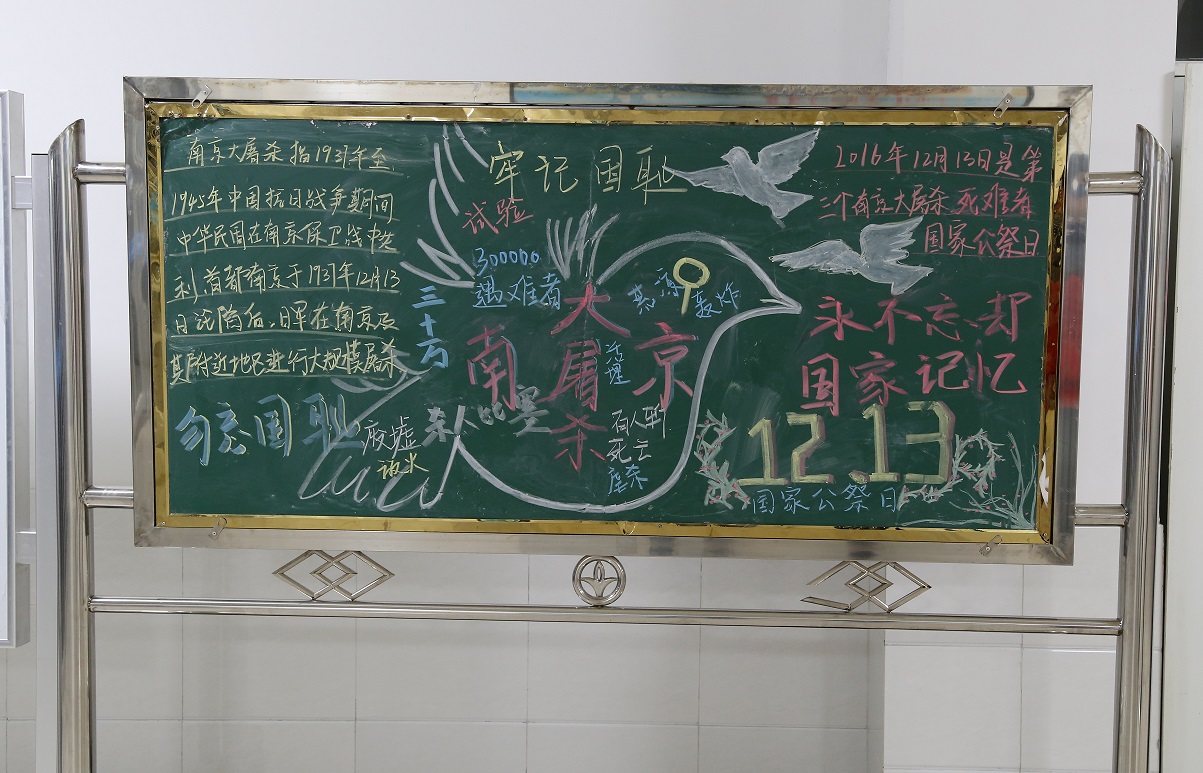 南京大屠杀指1937年至
1945年中国抗日战争期间
中华民国在南京保卫战中失
利、首都南京于1937年12月13
日沦陷后，日军在南京及
其附近地区进行大规模屠杀
勿忘国耻
牢记国耻
试验
300000
遇难者
三十万
轰炸
南京
大屠杀
百人斩
死亡
屠杀
杀人比赛
废墟
2016年12月13日是第
三个南京大屠杀死难者
国家公祭日
永不忘却
国家记忆
12.13
国家公祭日